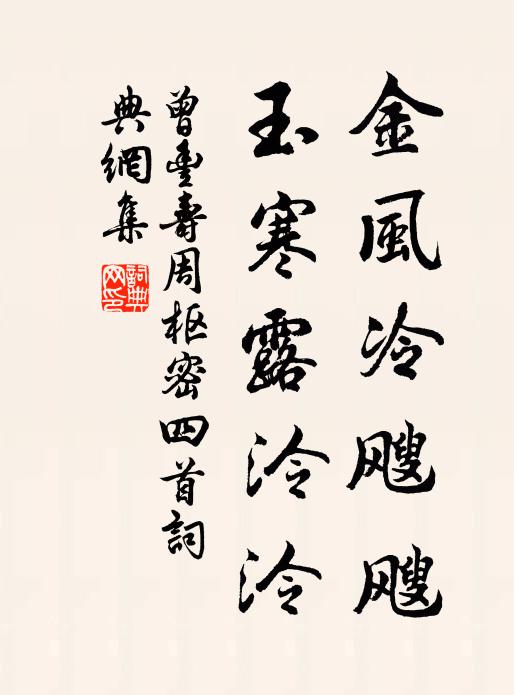 金風冷颼颼
玉寒露泠泠
曾豐壽周枢密四首詞
典網集
詞典
网印